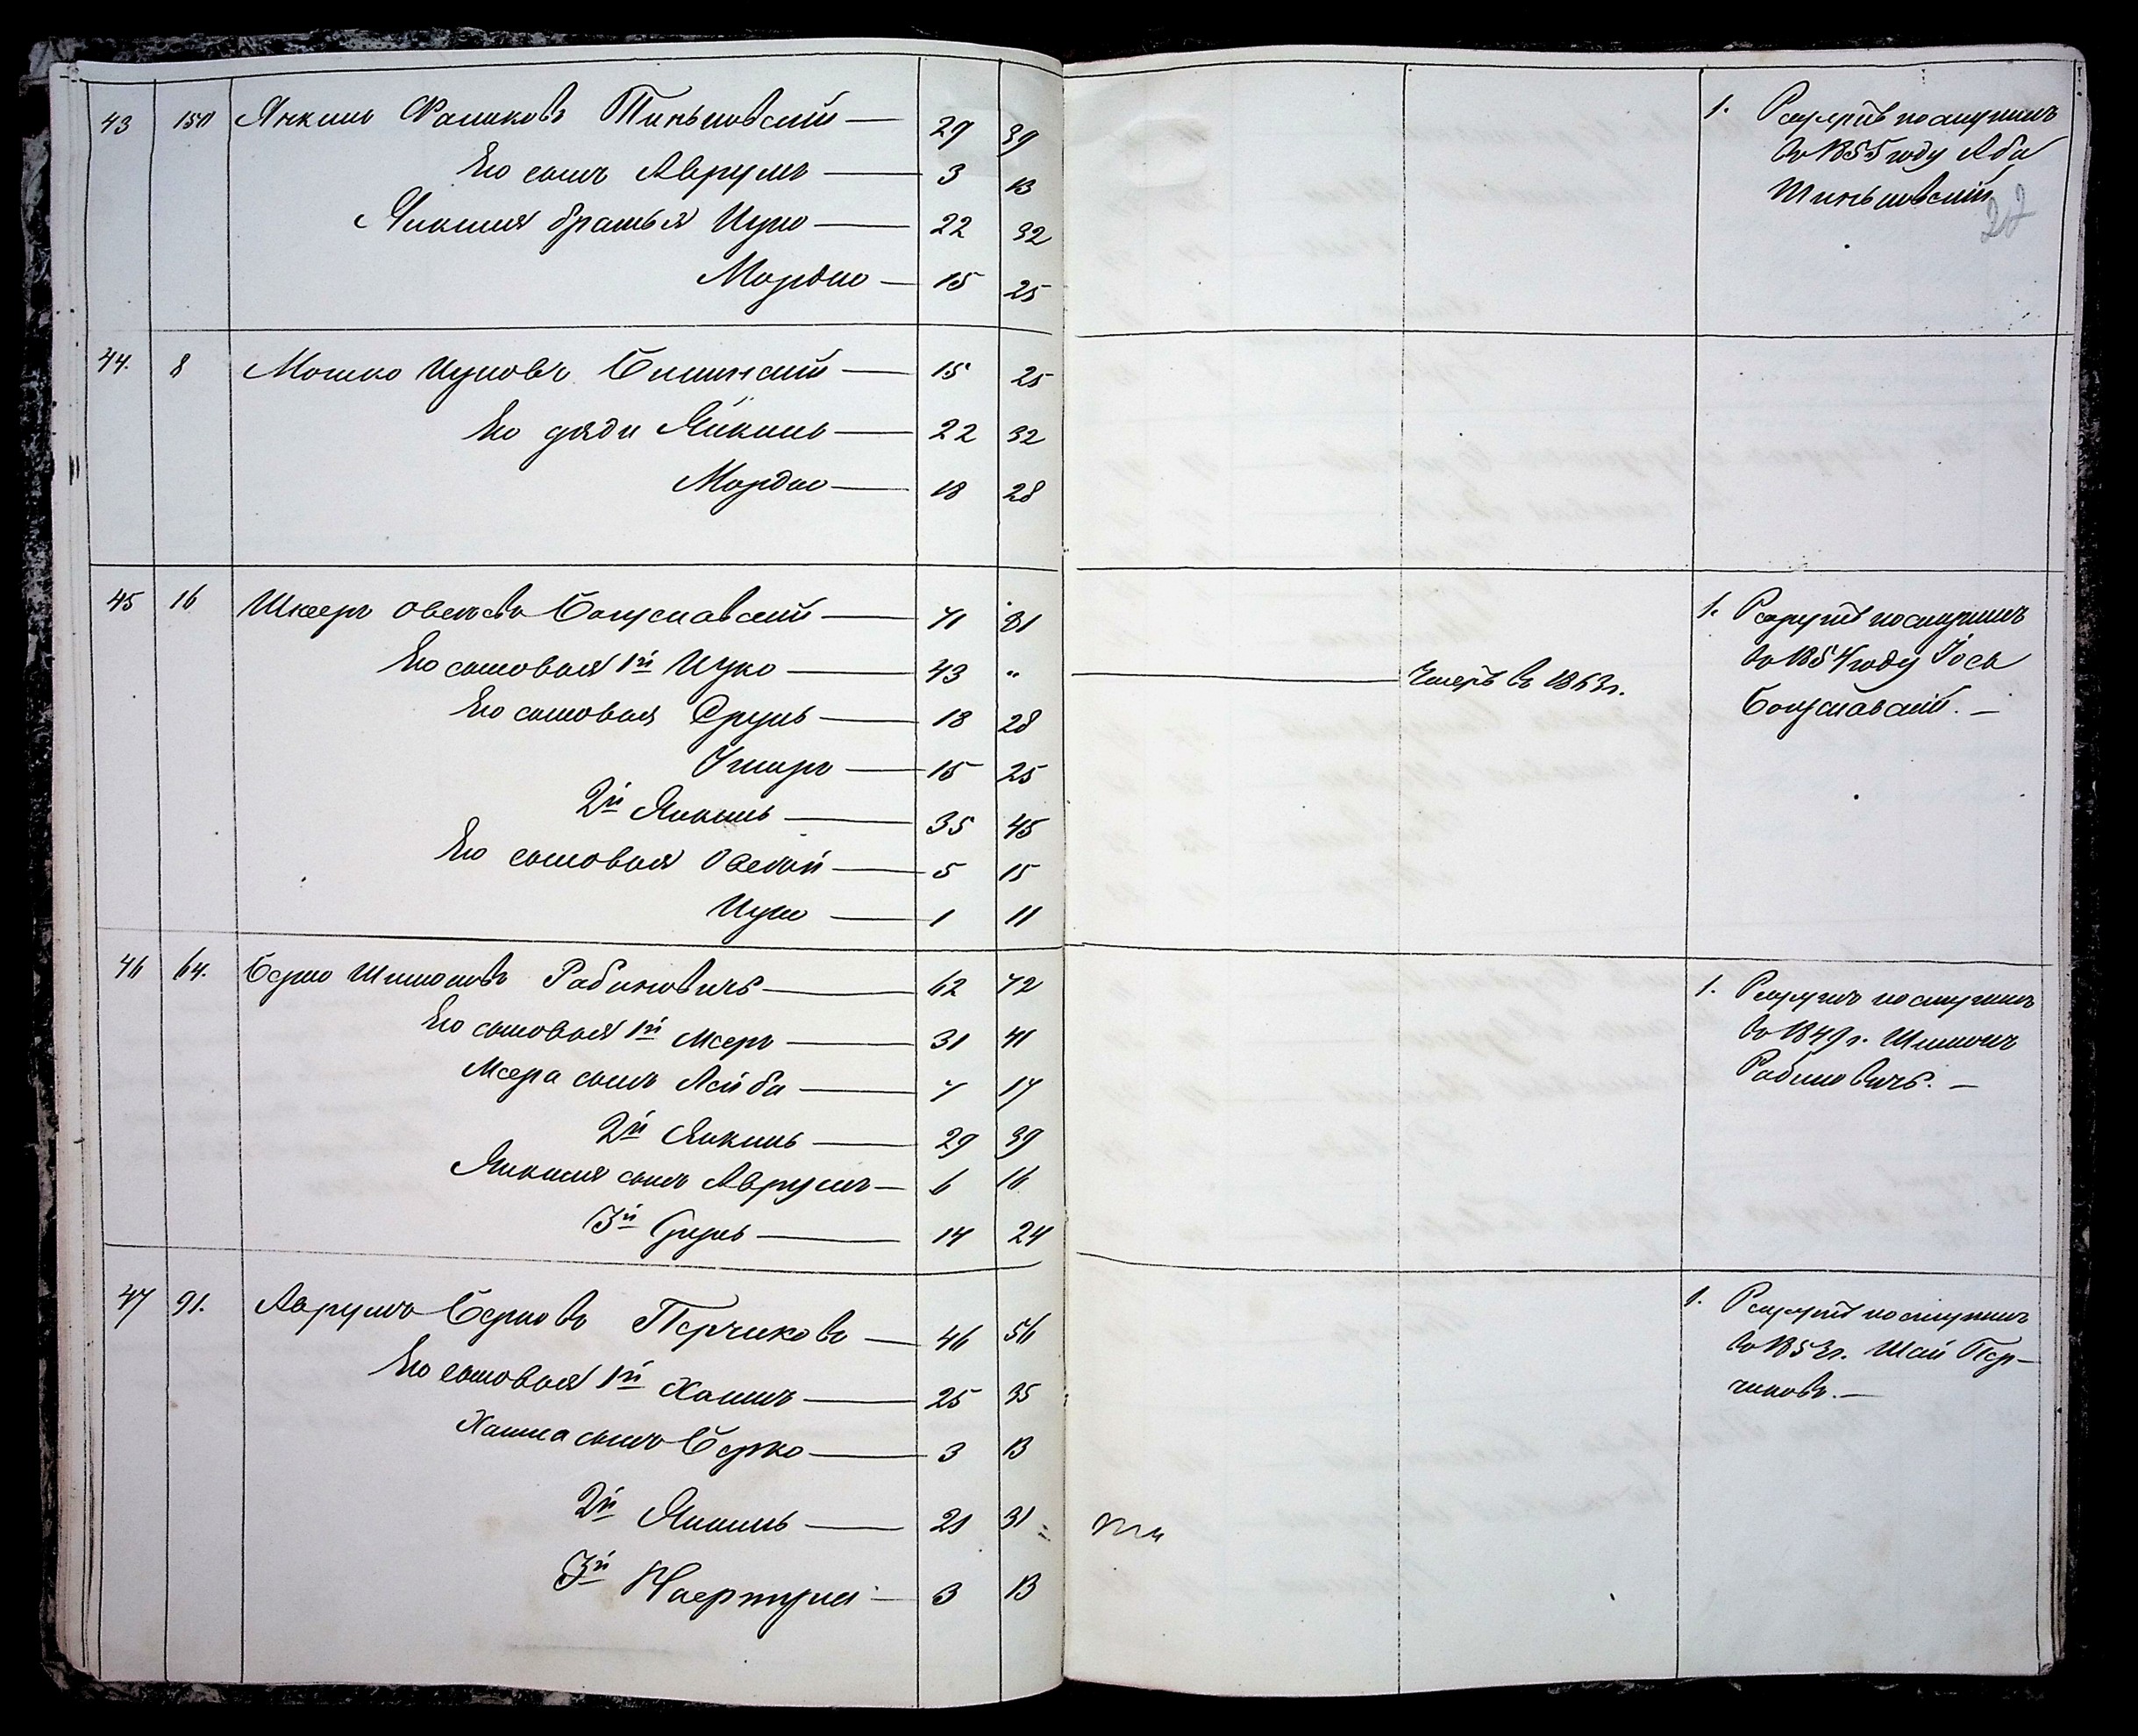 43 150 Янкель Фальковъ Тиньковскій — 29 39
Его сынъ Аврумъ — 3 13
Янкеля братья Ицко — 22 32
Мордко — 15 25
44. 8 Мошко Ицковъ — 15 25
Его дяди Янкель — 22 32
Мордко — 18 28
45 16 Шмеръ Овсеевъ Богуславскій — 71 81
Его сыновья 1й Ицко — 43 "
Его сыновья Срулъ — 18 28
Ушеръ — 15 25
2й Янкель — 35 45
Его сыновья Овсей — 5 15
Ицко — 1 11
46 64. Берко Шимоновъ Рабиновичъ — 62 72
Его сыновья 1й Мееръ — 31 41
Меера сынъ Лейба — 7 17
2й Янкель — 29 39
Янкеля сынъ Аврумъ — 6 16
3й Срулъ — 14 24
47 91. Аврумъ Берковъ Перчиковъ — 46 56
Его сыновья 1й Хаимъ — 25 35
Хаима сынъ Берко — 3 13
2й Янкель — 21 31
3й — 3 13
1. Рекрутъ поступилъ
въ 1855 году Аба
Тиньковскій
27
Умеръ въ 1863 г.
1. Рекрутъ поступилъ
въ 1854 году Іось
Богуславскій. —
1. Рекрутъ поступилъ
въ 1849 г. Шимонъ
Рабиновичъ. —
1. Рекрутъ поступилъ
въ 1853 г. Шай Пер-
чиковъ. —